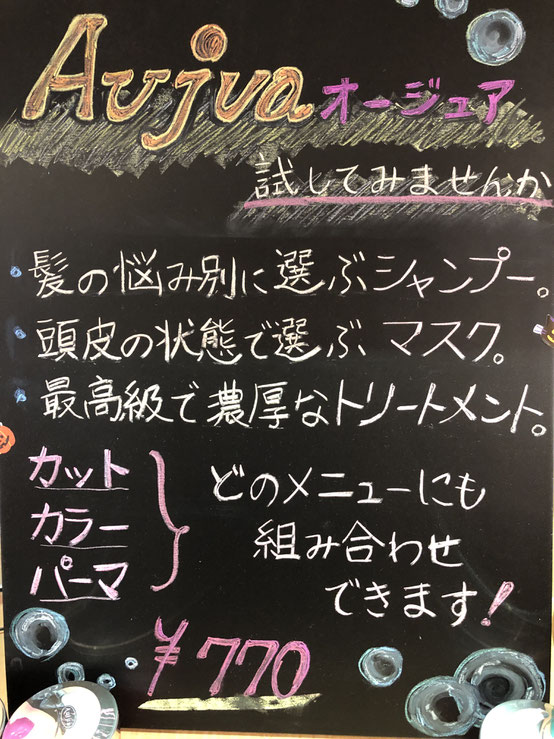 Aujua オージュア
試してみませんか
・髪の悩み別に選ぶシャンプー。
・頭皮の状態で選ぶマスク。
・最高級で濃厚なトリートメント。
カット
カラー
パーマ
どのメニューにも
組み合わせ
できます!
¥770